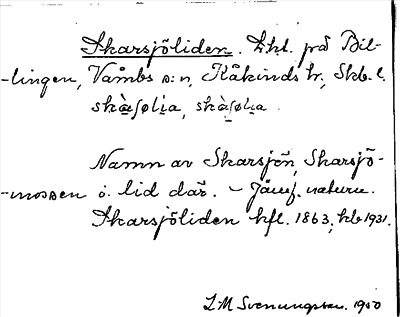 Skarsjöliden. Lht. på Bil-
-lingen, Våmbs s:n, Kåkinds hr, Skb. l.
Namn av Skarsjön, Skarsjö-
-mossen o. lid där. – Jämf. naturn.
Skarsjöliden hfl. 1863, kb 1931.
L M Svenungsson. 1950